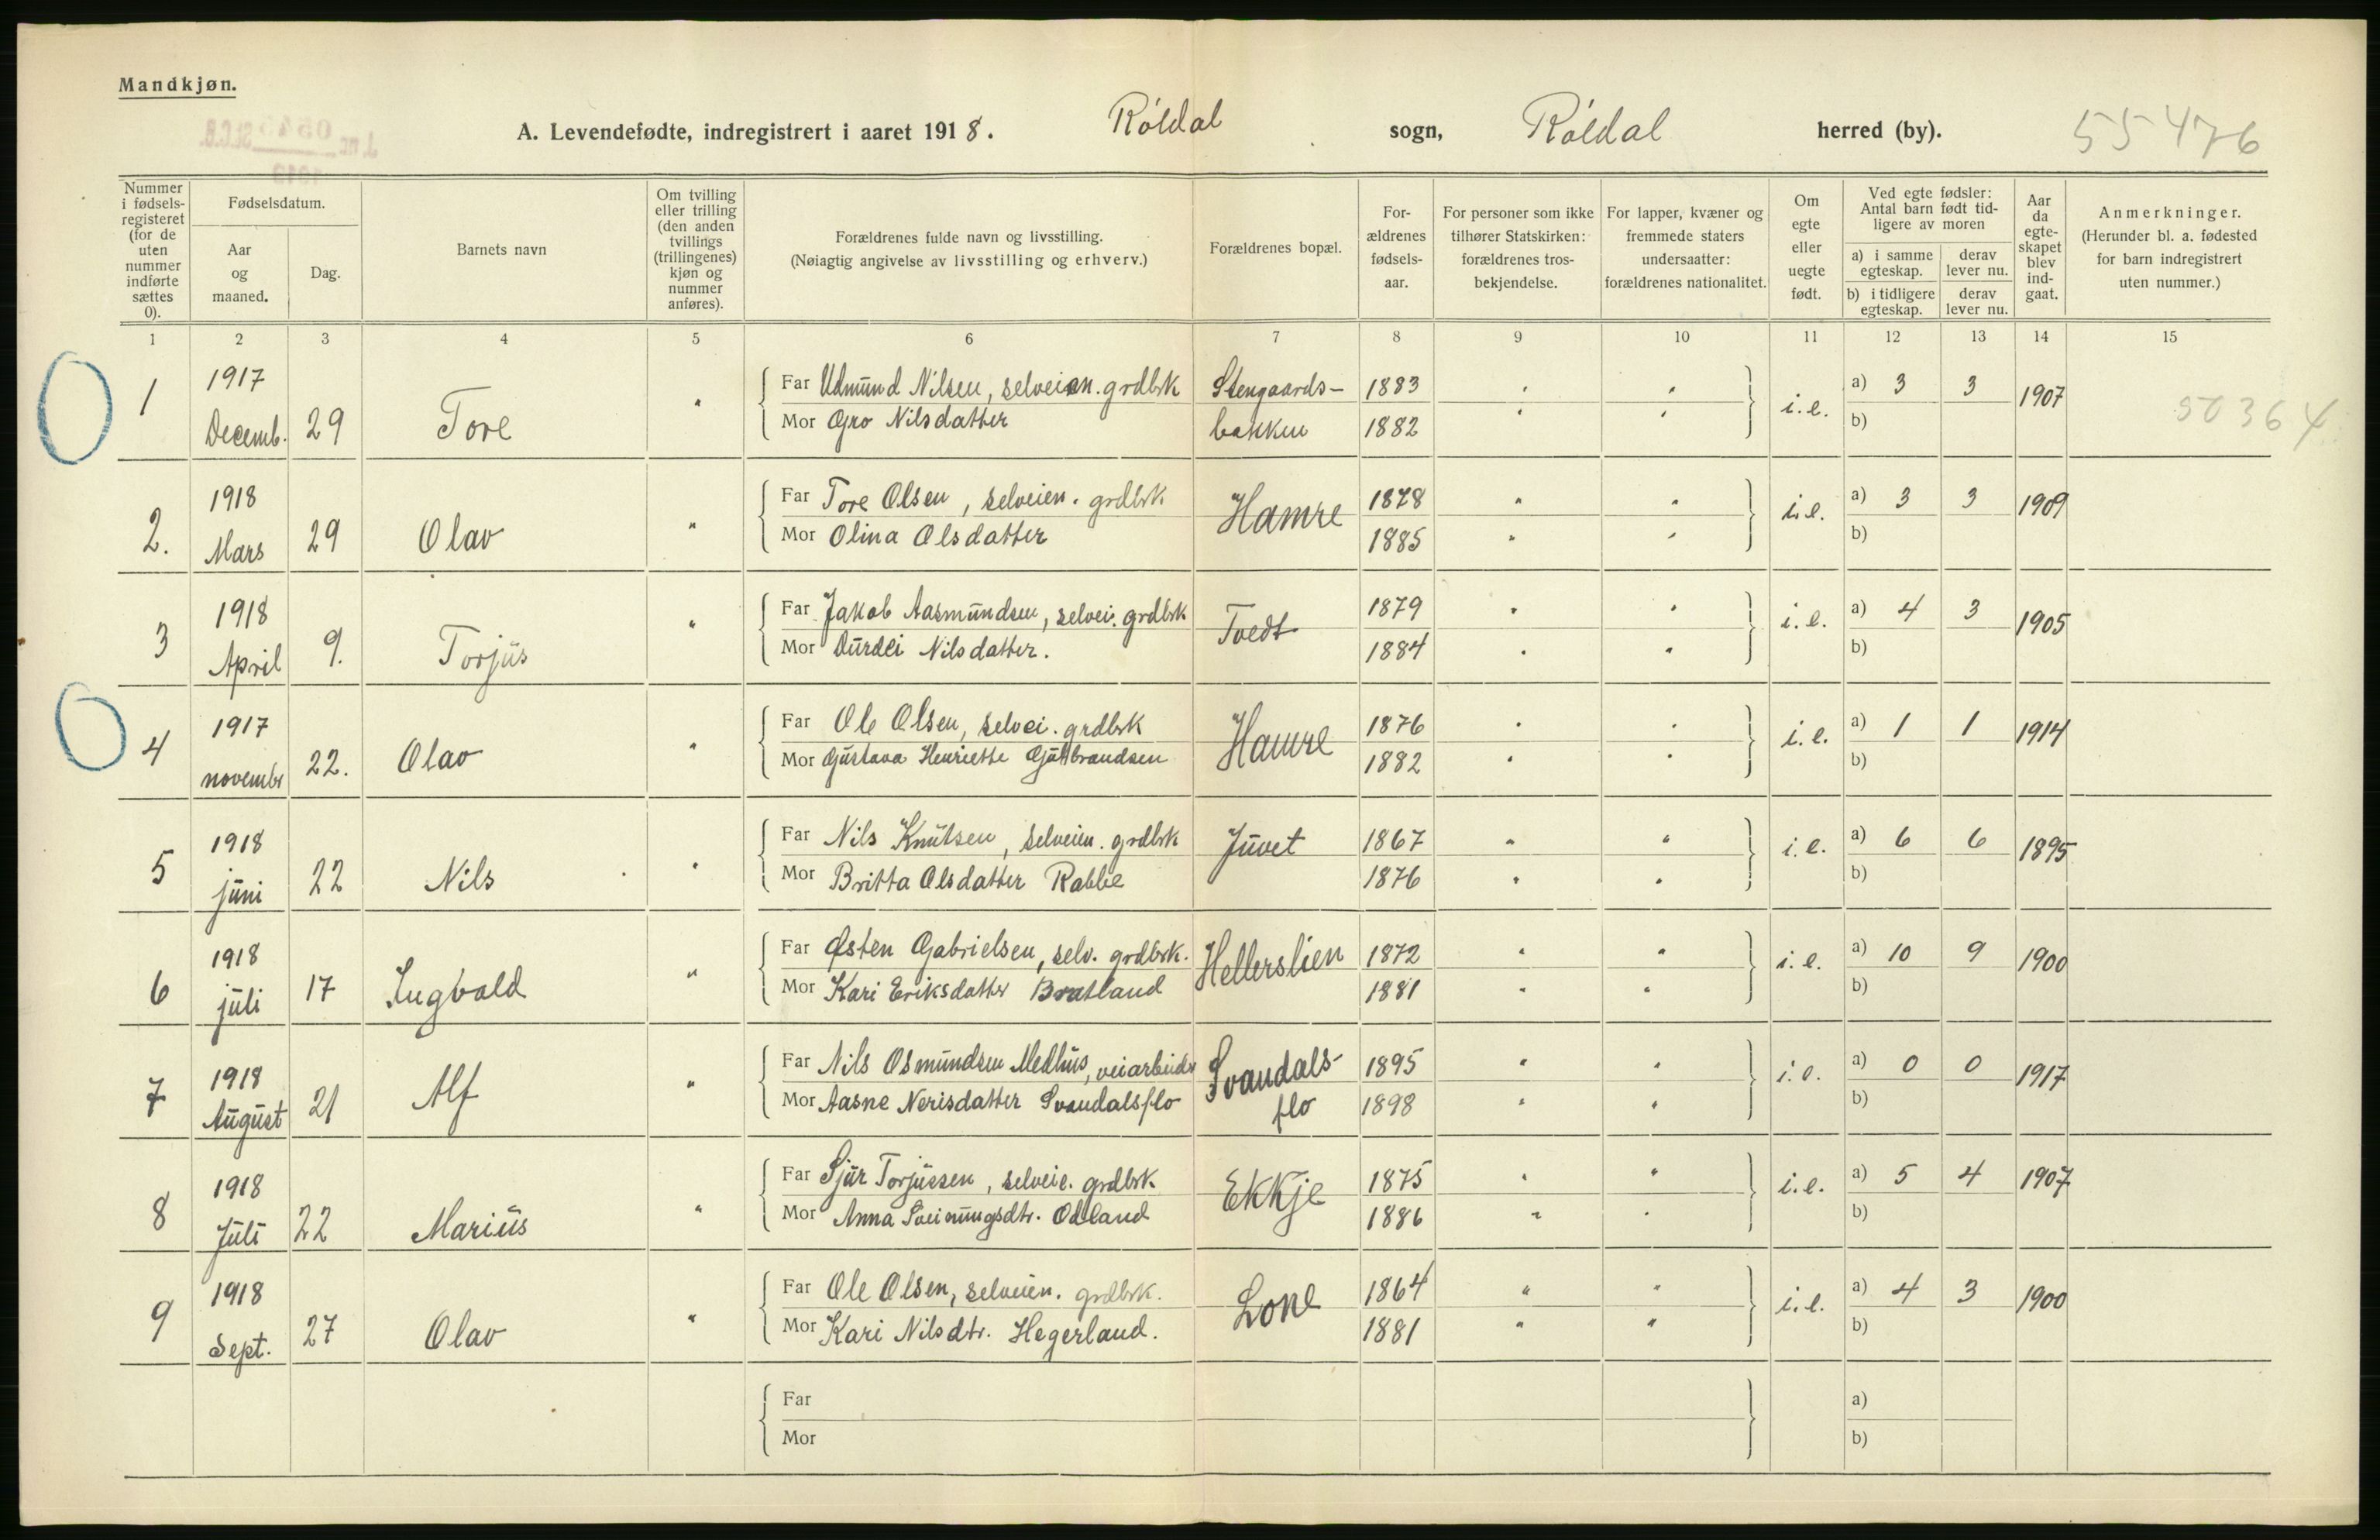 Mandkjøn.
A. Levendefødte, indregistrert i aaret 1918. Röldal sogn, Röldal herred (by). 55476
Nummer i fødselsregisteret (for de uten nummer indførte sættes 0).
Fødselsdatum.
Aar og maaned.
Dag.
Barnets navn
Om tvilling eller trilling (den anden tvillings (trillingenes) kjøn og nummer anføres).
Forældrenes fulde navn og livsstilling.
(Nøiagtig angivelse av livsstilling og erhverv.)
Forældrenes bopæl.
Forældrenes fødselsaar.
For personer som ikke tilhører Statskirken: forældrenes trosbekjendelse.
For lapper, kvæner og fremmede staters undersaatter: forældrenes nationalitet.
Om egte eller uegte født.
Ved egte fødsler: Antal barn født tidligere av moren
a) i samme egteskap. derav lever nu.
b) i tidligere egteskap. derav lever nu.
Aar da egteskapet blev indgaat.
Anmerkninger.
(Herunder bl. a. fødested for barn indregistrert uten nummer.)
1 2 3 4 5 6 7 8 9 10 11 12 13 14 15
1 1917 Decemb. 29 Tore " Far Udmund Nilsen, selveien. grdbrk Stengaards- 1883 " " i.e. a) 3 3 1907 50364
Mor Gro Nilsdatter bakken 1882 " " b)
2. 1918 Mars 29 Olav " Far Tore Olsen, selveien. grdbrk Hamre 1878 " " i.e. a) 3 3 1909
Mor Olina Olsdatter 1885 " " b)
3 1918 April 9. Torjus " Far Jakob Aasmundsen, selvei. grdbrk Tvedt 1879 " " i.e. a) 4 3 1905
Mor Durdei Nilsdatter. 1884 " " b)
4 1917 novembr 22. Olav " Far Ole Olsen, selvei. grdbrk Hamre 1876 " " i.e. a) 1 1 1914
Mor Gustava Henriette Guttbrandsen 1882 " " b)
5 1918 juni 22 Nils " Far Nils Knutsen, selveien. grdbrk Juvet 1867 " " i.e. a) 6 6 1895
Mor Britta Olsdatter Rabbe 1876 " " b)
6 1918 juli 17 Ingvald " Far Østen Gabrielsen, selv. grdbrk. Hellerslien 1872 " " i.e. a) 10 9 1900
Mor Kari Eriksdatter Bratland 1881 " " b)
7 1918 August 21 Alf " Far Nils Osmundsen Medhus, veiarbeider Svandals- 1895 " " i.e. a) 0 0 1917
Mor Aasne Nerisdatter Svandalsflo flo 1898 " " b)
8 1918 Juli 22 Marius " Far Sjur Torjussen, selveie. grdbrk. Ekkje 1875 " " i.e. a) 5 4 1907
Mor Anna Sveinungsdtr. Odland 1886 " " b)
9 1918 Sept. 27 Olav " Far Ole Olsen, selveien. grdbrk. Lone 1864 " " i.e. a) 4 3 1900
Mor Kari Nilsdtr. Hegerland. 1881 " " b)
Far a)
Mor b)